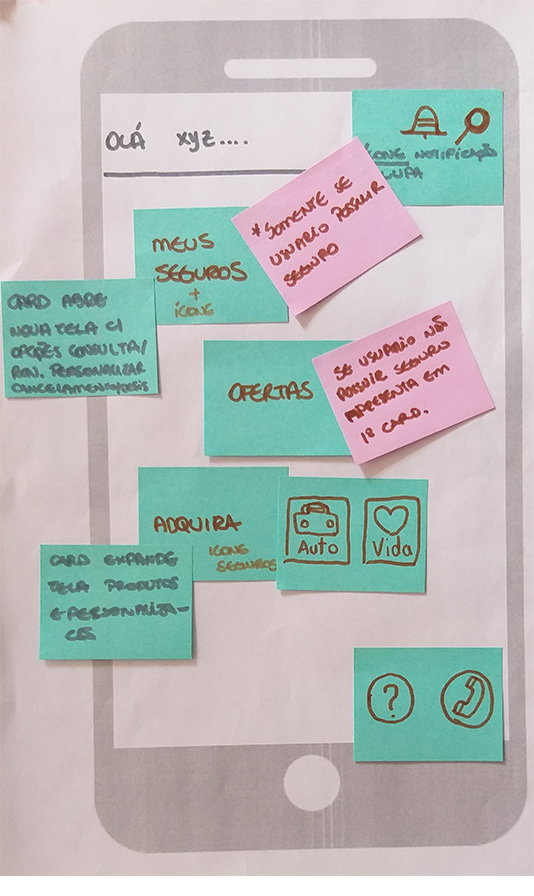 OLÁ XYZ....
ÍCONE NOTIFICAÇÃO
LUPA
*SOMENTE SE
USUARIO POSSUIR
SEGURO
MEUS
SEGUROS
+
ÍCONE
CARD ABRE
NOVA TELA C/
OPÇÕES CONSULTA/
REN. PERSONALIZAR
CANCELAMENTO/
OFERTAS
SE USUARIO NÃO
POSSUIR SEGURO
APRESENTA EM
1º CARD.
ADQUIRA
ICONE
SEGUROS
Auto
Vida
CARD EXPANDE
TELA PRODUTOS
E PERSONALIZA-
ÇÕES
?